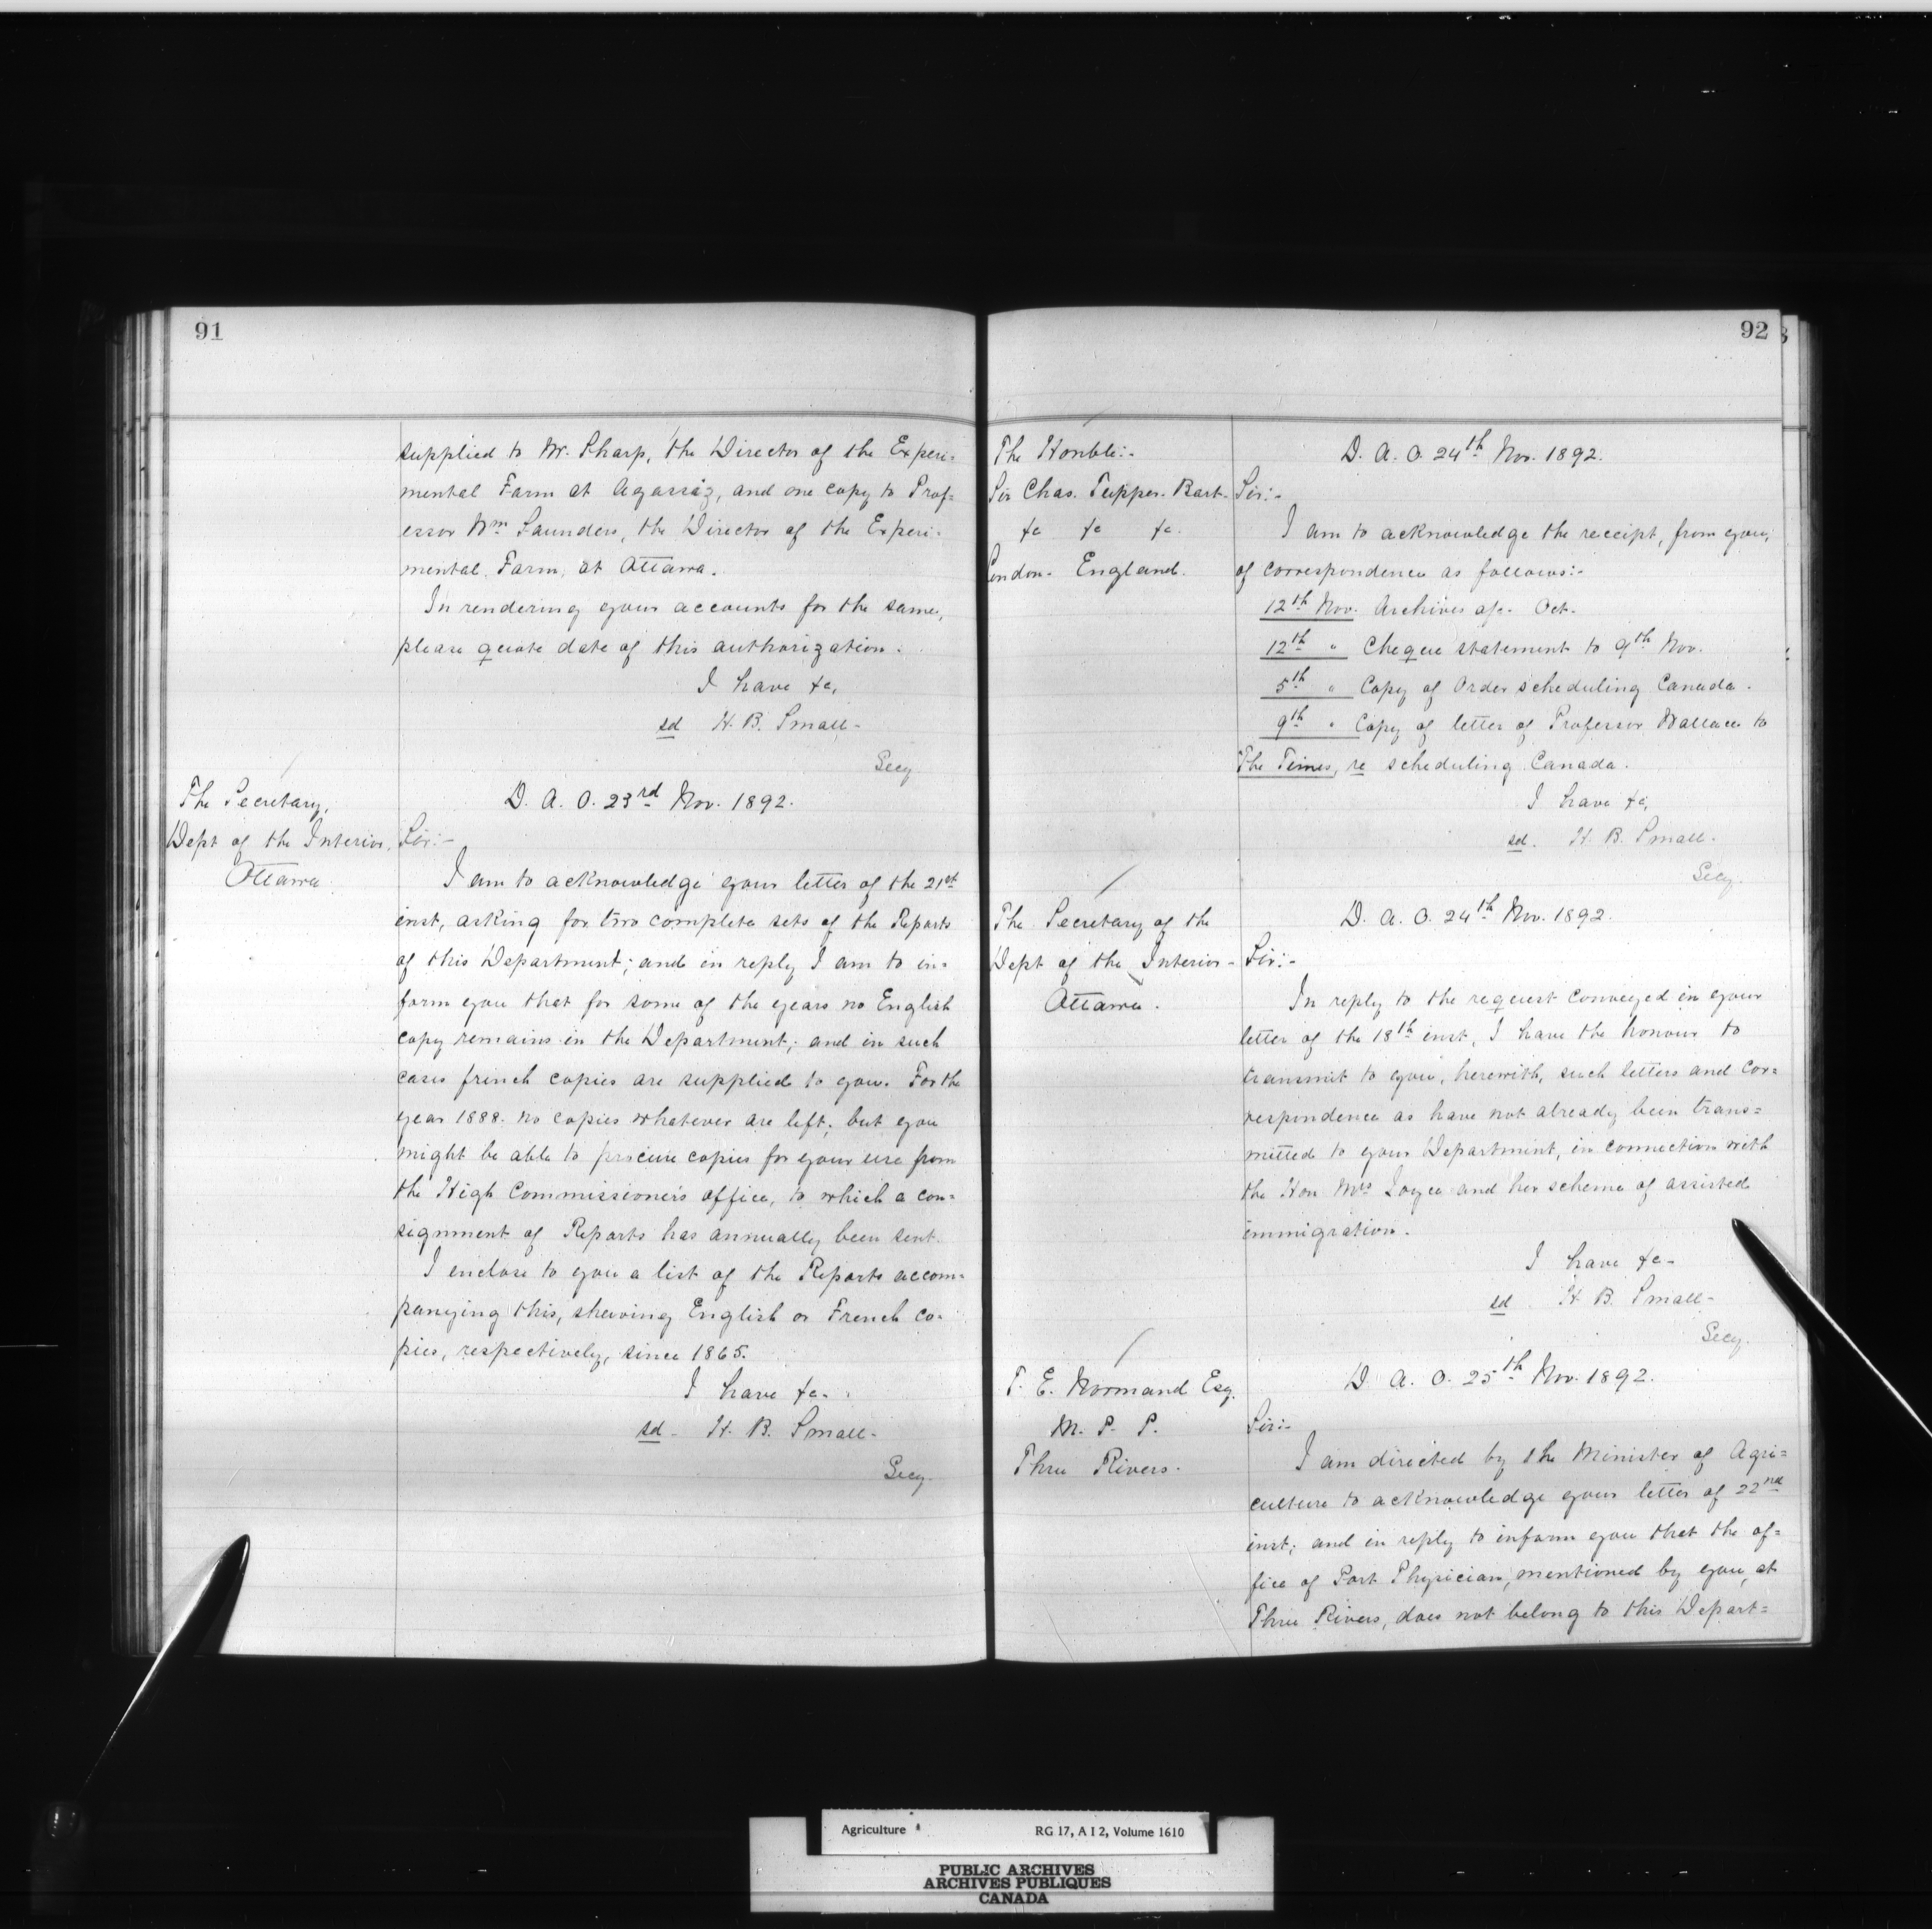 91
supplied to Mr. Sharp, the Director of the Experi=
mental Farm at Agassiz, and one copy to Prof=
essor Wm Saunders, the Director of the Experi=
mental Farm, at Ottawa.
In rendering your accounts for the same,
please quote date of this authorization.
I have &c,
sd H. B. Small-
Secy
The Secretary,
Dept of the Interior,
Ottawa
D. A. O. 23rd Nov. 1892.
Sir:-
I am to acknowledge your letter of the 21st
inst, asking for two complete sets of the Reports
of this Department; and in reply I am to in=
form you that for some of the years no English
copy remains in the Department; and in such
cases french copies are supplied to you. For the
year 1888. no copies whatever are left; but you
might be able to procure copies for your use from
the High Commissioner's office, to which a con=
signment of Reports has annually been sent.
I enclose to you a list of the Reports accom=
panying this, shewing English or French co=
pies, respectively, since 1865.
I have &c.
sd - H. B. Small-
Secy.
92
The Honble:-
Sir Chas. Tupper. Bart-
&c &c &c.
London- England.
D. A. O. 24th Nov. 1892.
Sir:-
I am to acknowledge the receipt, from you,
of correspondence as follows:-
12th Nov. Archives a/c. Oct.
12th " Cheque statement to 9th Nov.
5th " Copy of Order scheduling Canada.
9th " Copy of letter of Professor Wallace to
The Times, re scheduling Canada.
I have &c,
sd. H. B. Small-
Secy.
The Secretary of the
Dept of the Interior-
Ottawa.
D. A. O. 24th Nov. 1892.
Sir:-
In reply to the request conveyed in your
letter of the 18th inst, I have the honour to
transmit to you, herewith, such letters and cor=
respondence as have not already been trans=
mitted to your Department, in connection with
the Hon Mrs Joyce and her scheme of assisted
immigration.
I have &c-
sd H. B. Small-
Secy.
T. E. Normand Esq.
M. P. P.
Three Rivers.
D. A. O. 25th Nov. 1892.
Sir:-
I am directed by the Minister of Agri=
culture to acknowledge your letter of 22nd
inst; and in reply to inform you that the of=
fice of Port Physician, mentioned by you, at
Three Rivers, does not belong to this Depart=
Agriculture RG 17, A I 2, Volume 1610
PUBLIC ARCHIVES
ARCHIVES PUBLIQUES
CANADA